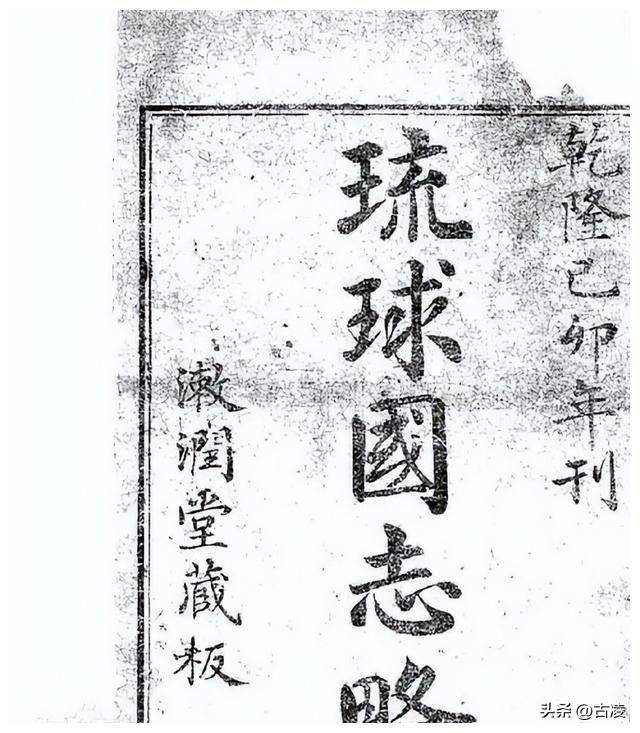 乾隆己卯年刊
琉球國志略
漱潤堂藏板
头条 @古凌